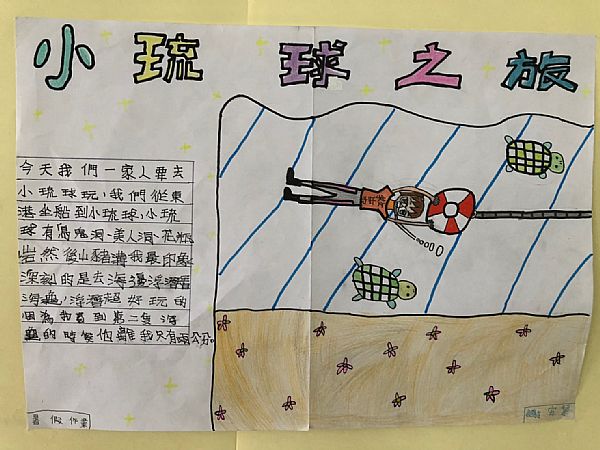 小琉球之旅
今天我們一家人要去
小琉球玩，我們從東
港坐船到小琉球，小琉
球有烏鬼洞、美人洞、花瓶
岩然後山豬溝我最印象
深刻的是去海邊浮潛看
海龜，浮潛超好玩的
因為我看到第二隻海
龜的時候他離我只有兩公分。
暑假作業